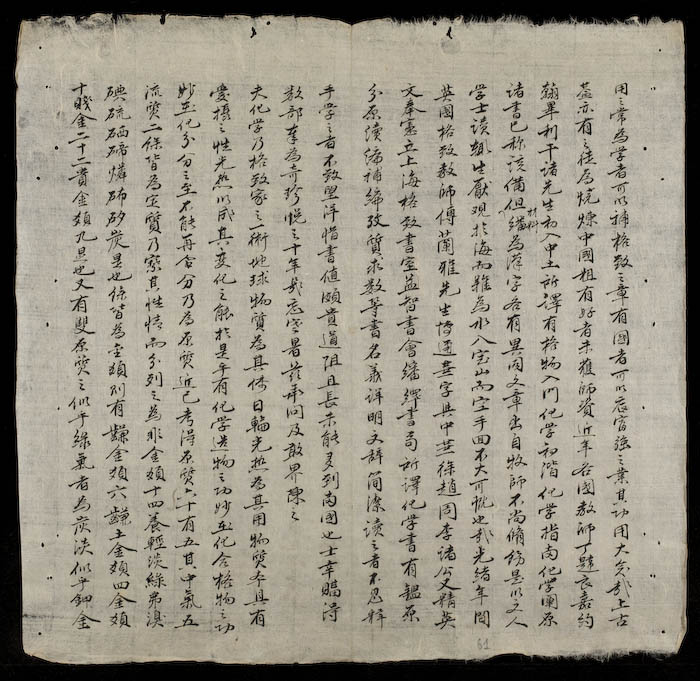 用之常為學者可以補格致之章有國者可以宏富強之業其功用大矣哉上古
蓋亦有之徒為燒煉中國粗有好者未獲師資近年各國教師丁韙良嘉約
翰畢利干諸先生初入中土所譯有格物入門化学初階化学指南化学闡原
諸書已称该備但材料繙為漢字各有異同文章出自牧師不尚脩飾是以文人
学士读輒生厭观於海而難為水入宝山而空手回不大可慨也哉光緒年間
英國格致教師傅蘭雅先生博通華字其中華徐趙周李諸公又精英
文奉憲立上海格致書室益智書會繙繹書局所譯化学書有鑑原
分原续編補編攷質求数等書名義详明文辞简潔读之者不忍释
手学之者不致望洋惜書值頗貴道阻且長未能多到南國也士幸購得
数部奉為奇珍悦之十年影忘寒暑兹承问及敢畧陳之
夫化学乃格致家之一術地球物質為其体日輪光热為其用物質本具有
愛攝之性光热以成其变化之能於是乎有化学造物之功妙在化合格物之功
妙在化分分之至不能再分乃為原質近已考得原質六十有五其中氣五
流質二條皆為定質乃察其性情而分列之為非金類十四養輕淡綠弗溴
碘硫硒碲燐砷矽炭是也餘皆為金類別有鹻金類六鹻土金類四金類
十賤金二十二貴金類九是也又有雙原質之似乎綠氣者為炭淡似乎鉀金
61